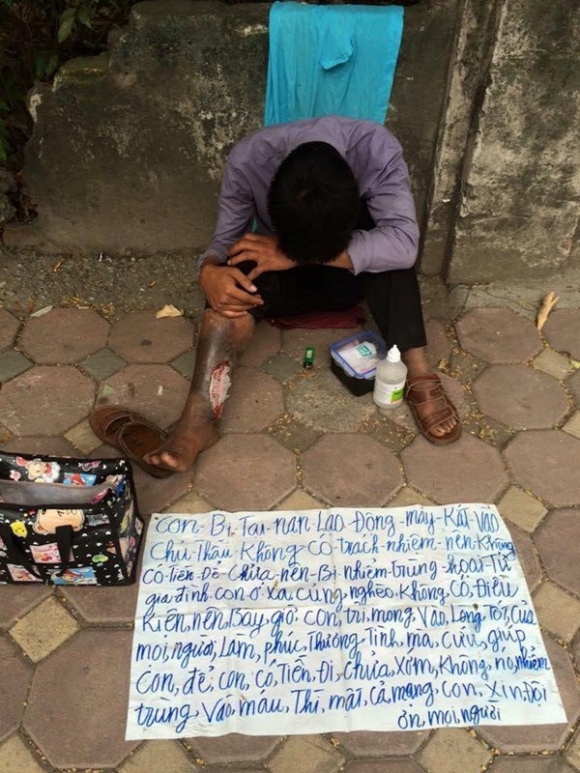 Con-Bị Tai-nạn Lao-Động-máy-Kắt-Vào
Chủ-Thầu-Không-Có-trách-nhiệm-nên-Không
Có-Tiền-Đễ-Chữa-nên-Bị-nhiễm-trùng-hoại-Tử
gia-đình con-ở-xa,cũng,nghèo,Không,Có,Điều
Kiện,nên,Bây,giờ,con,trỉ,mong,Vào,Lòng,Tốt,Của
mọi,người,Làm,phúc,Thương,Tình,mà,cứu,giúp
Con,đễ,con,có,Tiền,Đi,chữa,Xớm,Không,nó,nhiễm
trùng,Vào,máu,Thì,mất,cả,mạng,con,Xin,Đội
ơn,mọi,người